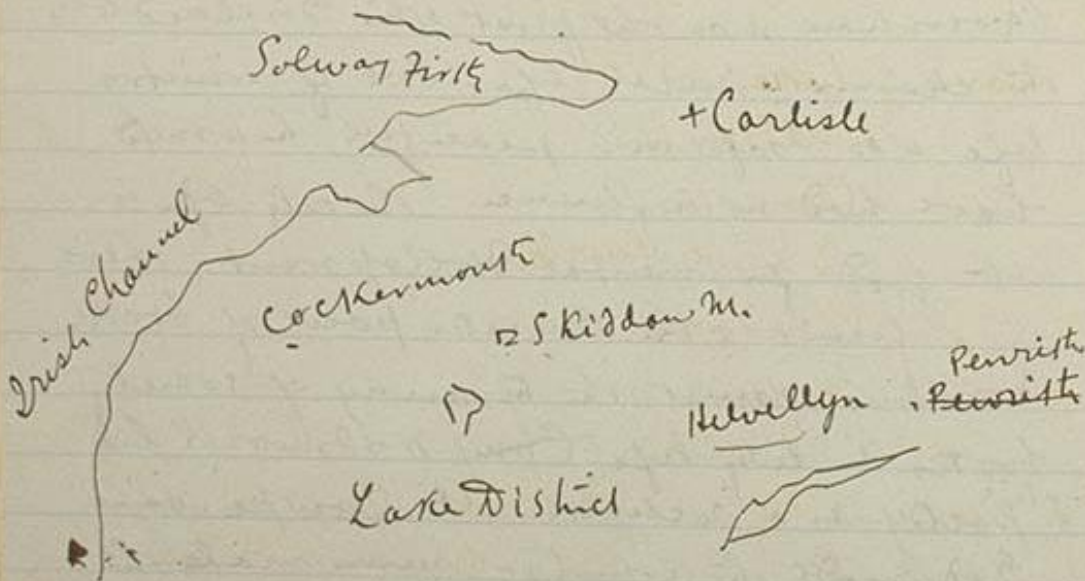 Solway Firth
+ Carlisle
Irish Channel
Cockermouth
Skiddaw M.
Penrith
Helvellyn . Penrith
Lake District